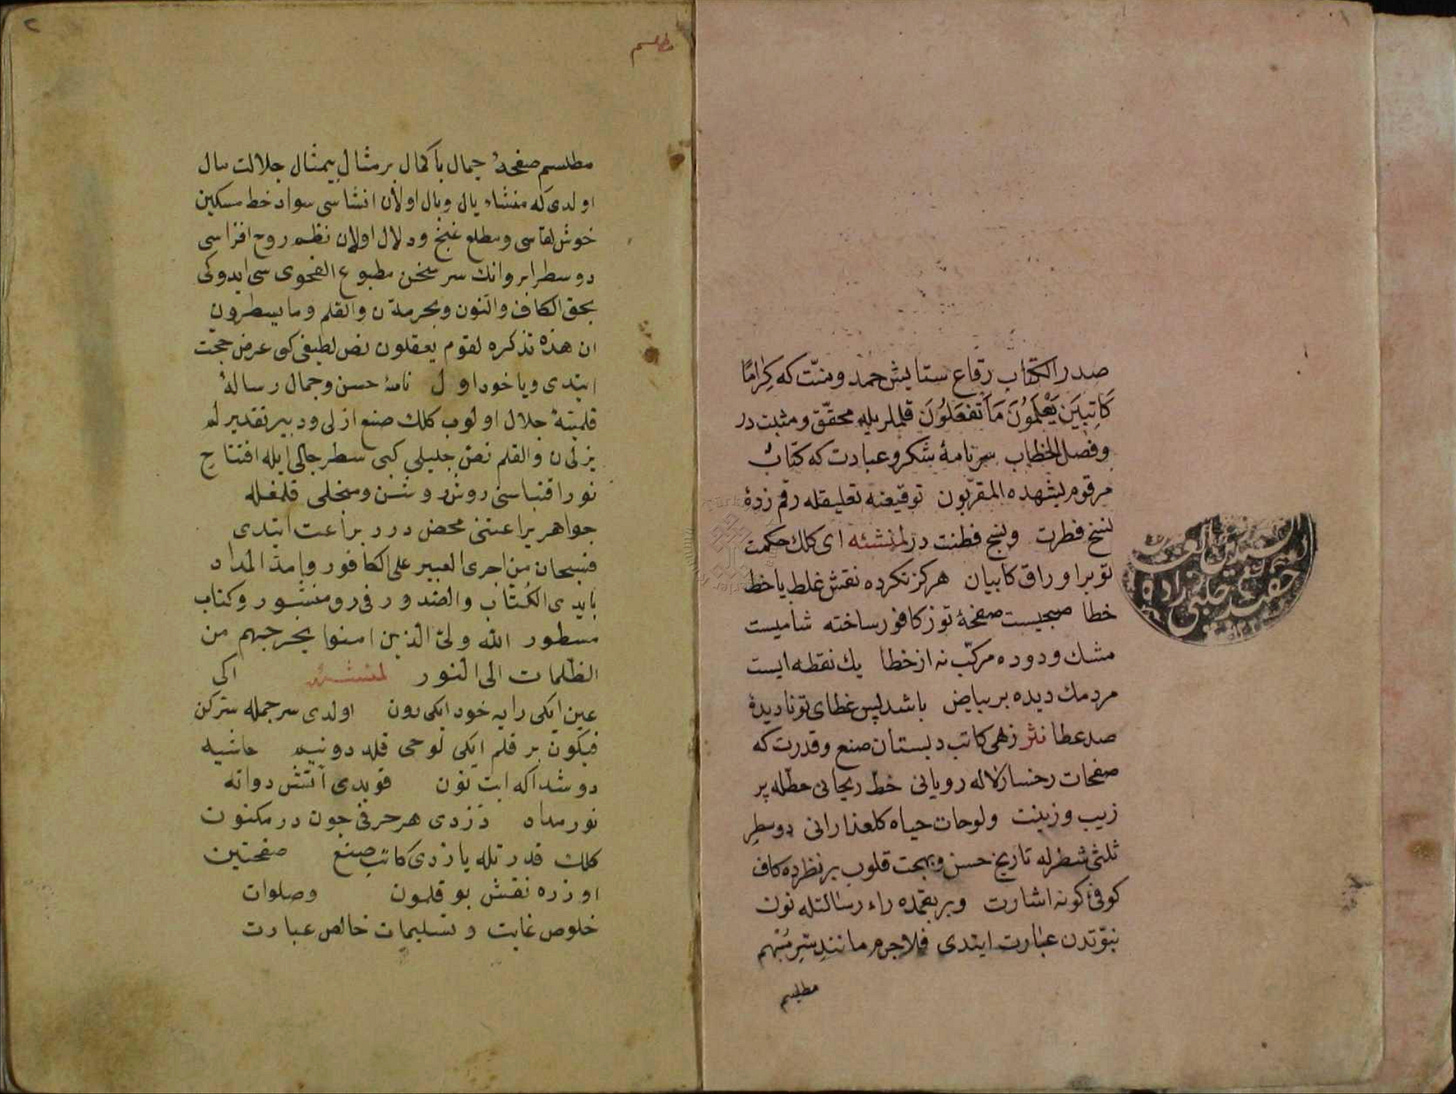 صدر الكتاب رقاع ستايش حمد ومنت كه كِرَامًا
كَاتِبِينَ يَعْلَمُونَ مَا تَفْعَلُونَ قلملريله محقّق ومثبت در
وفصل الخطاب سرنامهٔ شكر وعبادت كه كتابٌ
مرقوم يشهده المقربون توقيعنه تعليقله رقم زدهٔ
نسخ فطرت ونسج فطنت در لمنشئه اى كلك حكمت
تو بر اوراق كا بيان هركز نكرده نقش غلط يا خط
خطا صبحيست صفحهٔ تو ز كافور ساخته شاميست
مشك ودوده مركب نه از خطا يك نقطه ايست
مردمك ديده بر بياض باشد پس غطاى تو ناديدهٔ
صد عطا نثر زهى كاتب دبستان صنع وقدرت كه
صفحات رخسار لاله رويانى خط ريحانى خطله پر
زيب وزينت ولوحات جباه كلعذارانى دو سطر
ثلثى شطرله تاريخ حسن وبهجت قلوب بر نظرده كاف
كوفىٔ كونه اشارت وبر بقمده راء رسالتله نون
نبوتدن عبارت ايتدى فلاجرم مانند سر مبهم
مطلسم
مطلسم
مطلسم صفحهٔ جمال باكمال بر مثال بيمثال جلالت مآل
اولدى كه منشاء يال وبال اولان انشاسى سواد خط مسكين
خوش لقاسى ومطلع غنج ودلال اولان نظم روح افزاسى
دو سطر ابروانك سر سخن مطبوع الفحوى سى ايدوكى
بحق الكاف والنون وبحرمة ن والقلم وما يسطرون
ان هذه تذكره لقوم يعقلون نص لطيفى كبى عرض حجت
ايتدى ويا خود اول نامهٔ حسن وجمال رسالهٔ
جلال اولوب كلك صنع ازلى ودبير تقدير لم
يزلى ن والقلم نص جليلى كبى سطر جالى ايله افتتاح
نور اقتباسنى روش وشن قلمله
جواهر براعتنى محض درر براعت ايتدى
فسبحان من اجرى العبير على الكافور وامد المداد
بايدى الكتاب والصدور فى رق منشور وكتاب
مسطور الله ولى الذين امنوا يخرجهم من
الظلمات الى النور لمنشئه اكى
عين ايكى رايه خود ايكى نون اولدى سر جمله سر كن
فيكون بر قلم ايكى لوحى قلد دو نيم حاشيه
دو شد اكه ابت نون قويدى آتش دوانه
نور مداد دزدى هر حرفى چون در مكنون
كلك قدرتله يازدى كاتب صنع صفحتين
اوزره نقش بوقلمون وصلوات
خلوص غايت وتسليمات خالص عبارت